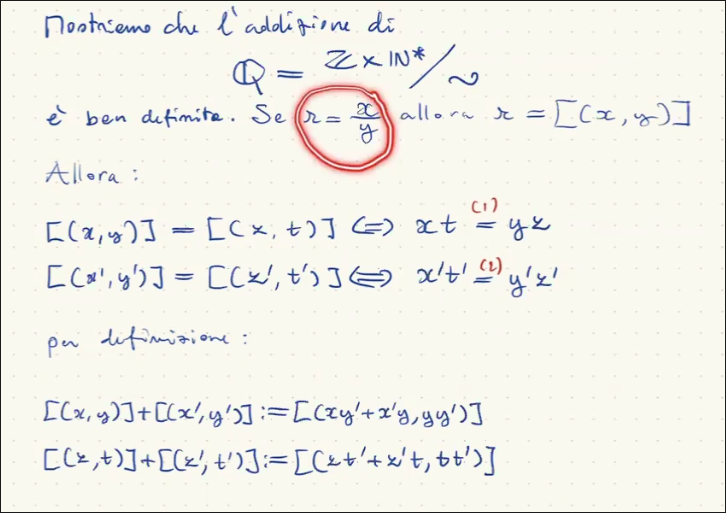 Mostriamo che l'addizione di
ℚ = ℤ×ℕ*/∼
è ben definita. Se r = x/y allora r = [(x,y)]
Allora:
[(x,y)] = [(z,t)] ⟺ xt =(1) yz
[(x',y')] = [(z',t')] ⟺ x't' =(2) y'z'
per definizione:
[(x,y)]+[(x',y')] := [(xy'+x'y, yy')]
[(z,t)]+[(z',t')] := [(zt'+z't, tt')]